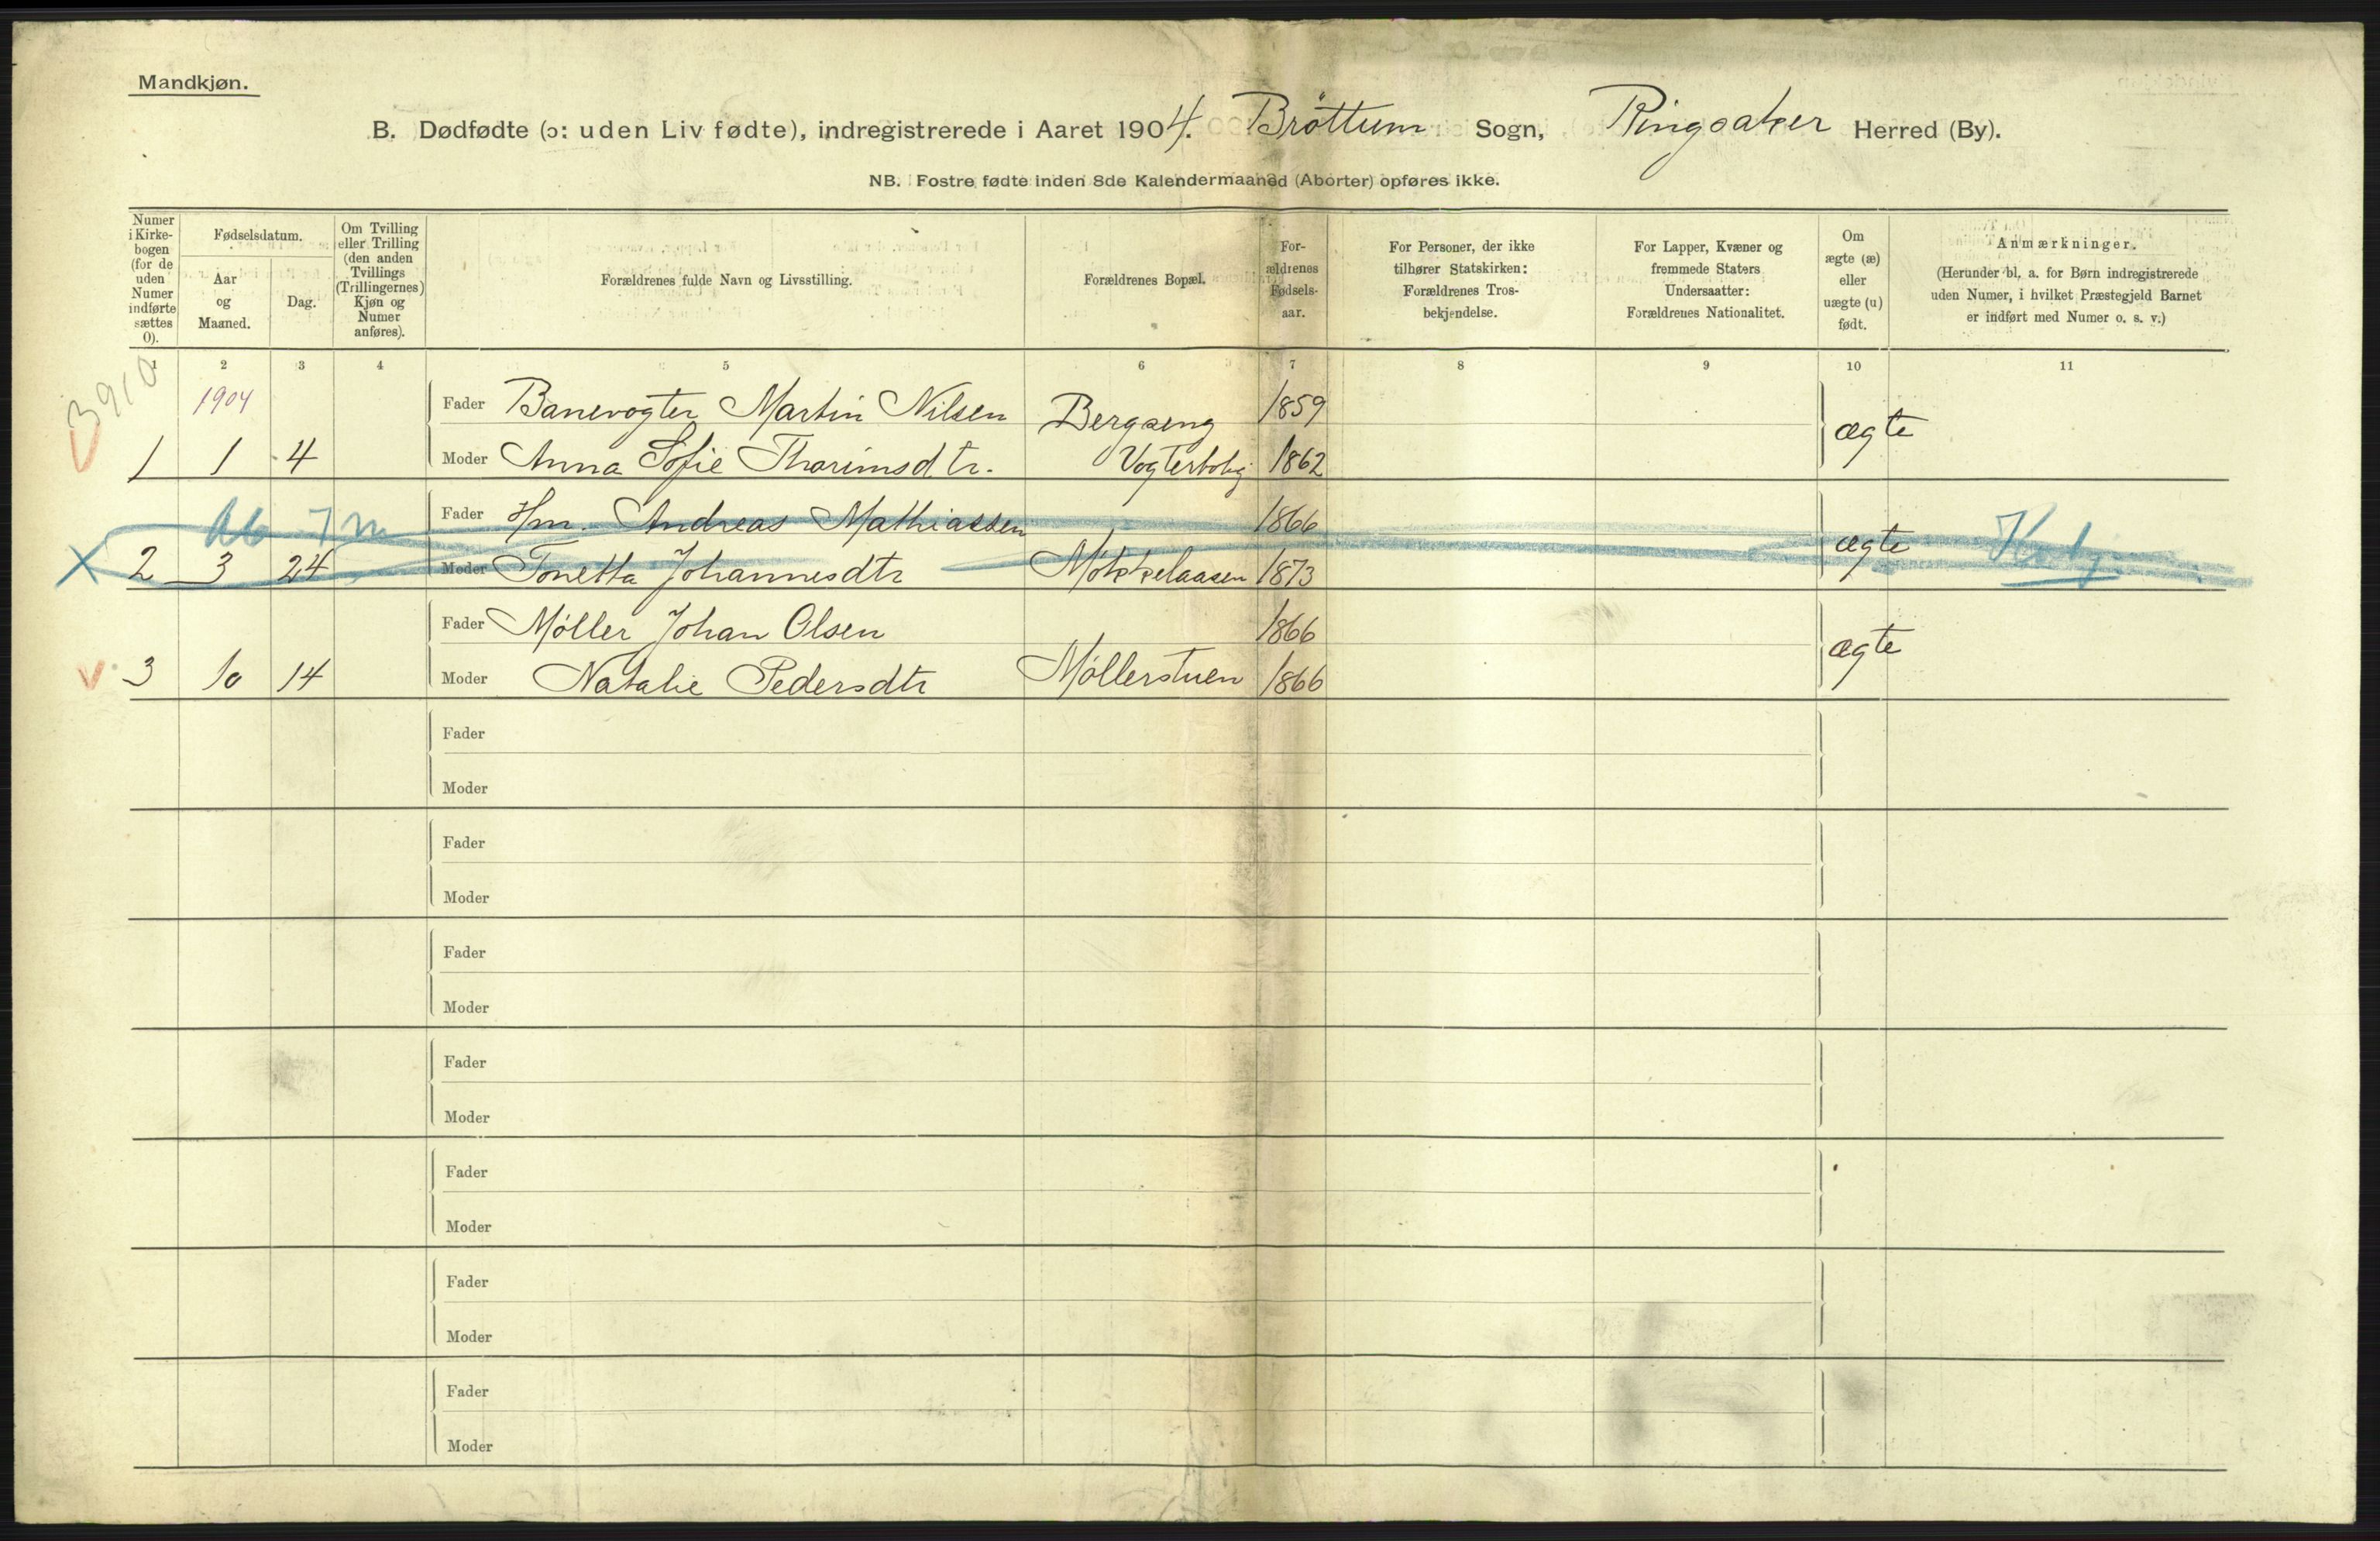 Mandkjøn.
B. Dødfødte (ɔ: uden Liv fødte), indregistrerede i Aaret 1904. Brøttum Sogn, Ringsaker Herred (By).
NB. Fostre fødte inden 8de Kalendermaaned (Aborter) opføres ikke.
Numer i Kirke-bogen (for de uden Numer indførte sættes 0).
Fødselsdatum.
Aar og Maaned.
Dag.
Om Tvilling eller Trilling (den anden Tvillings (Trillingernes) Kjøn og Numer anføres).
Forældrenes fulde Navn og Livsstilling.
Forældrenes Bopæl.
For-ældrenes Fødsels-aar.
For Personer, der ikke tilhører Statskirken: Forældrenes Tros-bekjendelse.
For Lapper, Kvæner og fremmede Staters Undersaatter: Forældrenes Nationalitet.
Om ægte (æ) eller uægte (u) født.
Anmærkninger.
(Herunder bl. a. for Børn indregistrerede uden Numer, i hvilket Præstegjeld Barnet er indført med Numer o. s. v.)
1 2 3 4 5 6 7 8 9 10 11
3910
1904 Fader Banevogter Martin Nilsen Bergseng 1859 ægte
1 1 4 Moder Anna Sofie Thorimsdtr. Vogterbolig 1862
Ab 7 m Fader Hm. Andreas Mathiassen 1866 ægte
X 2 3 24 Moder Tonetta Johannesdtr Mökkelaasen 1873
Fader Møller Johan Olsen 1866 ægte
V 3 10 14 Moder Natalie Pedersdtr Møllerstuen 1866
Fader
Moder
Fader
Moder
Fader
Moder
Fader
Moder
Fader
Moder
Fader
Moder
Fader
Moder